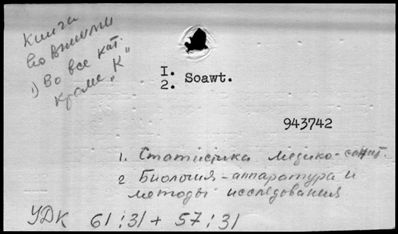 Книги
1) Во все кат.
кроме "К"
I.
2. Soawt.
943742
1. Статистика медико-санит.
2 Биология-аппаратура и
методы исследования
УДК 61:31 + 57:31